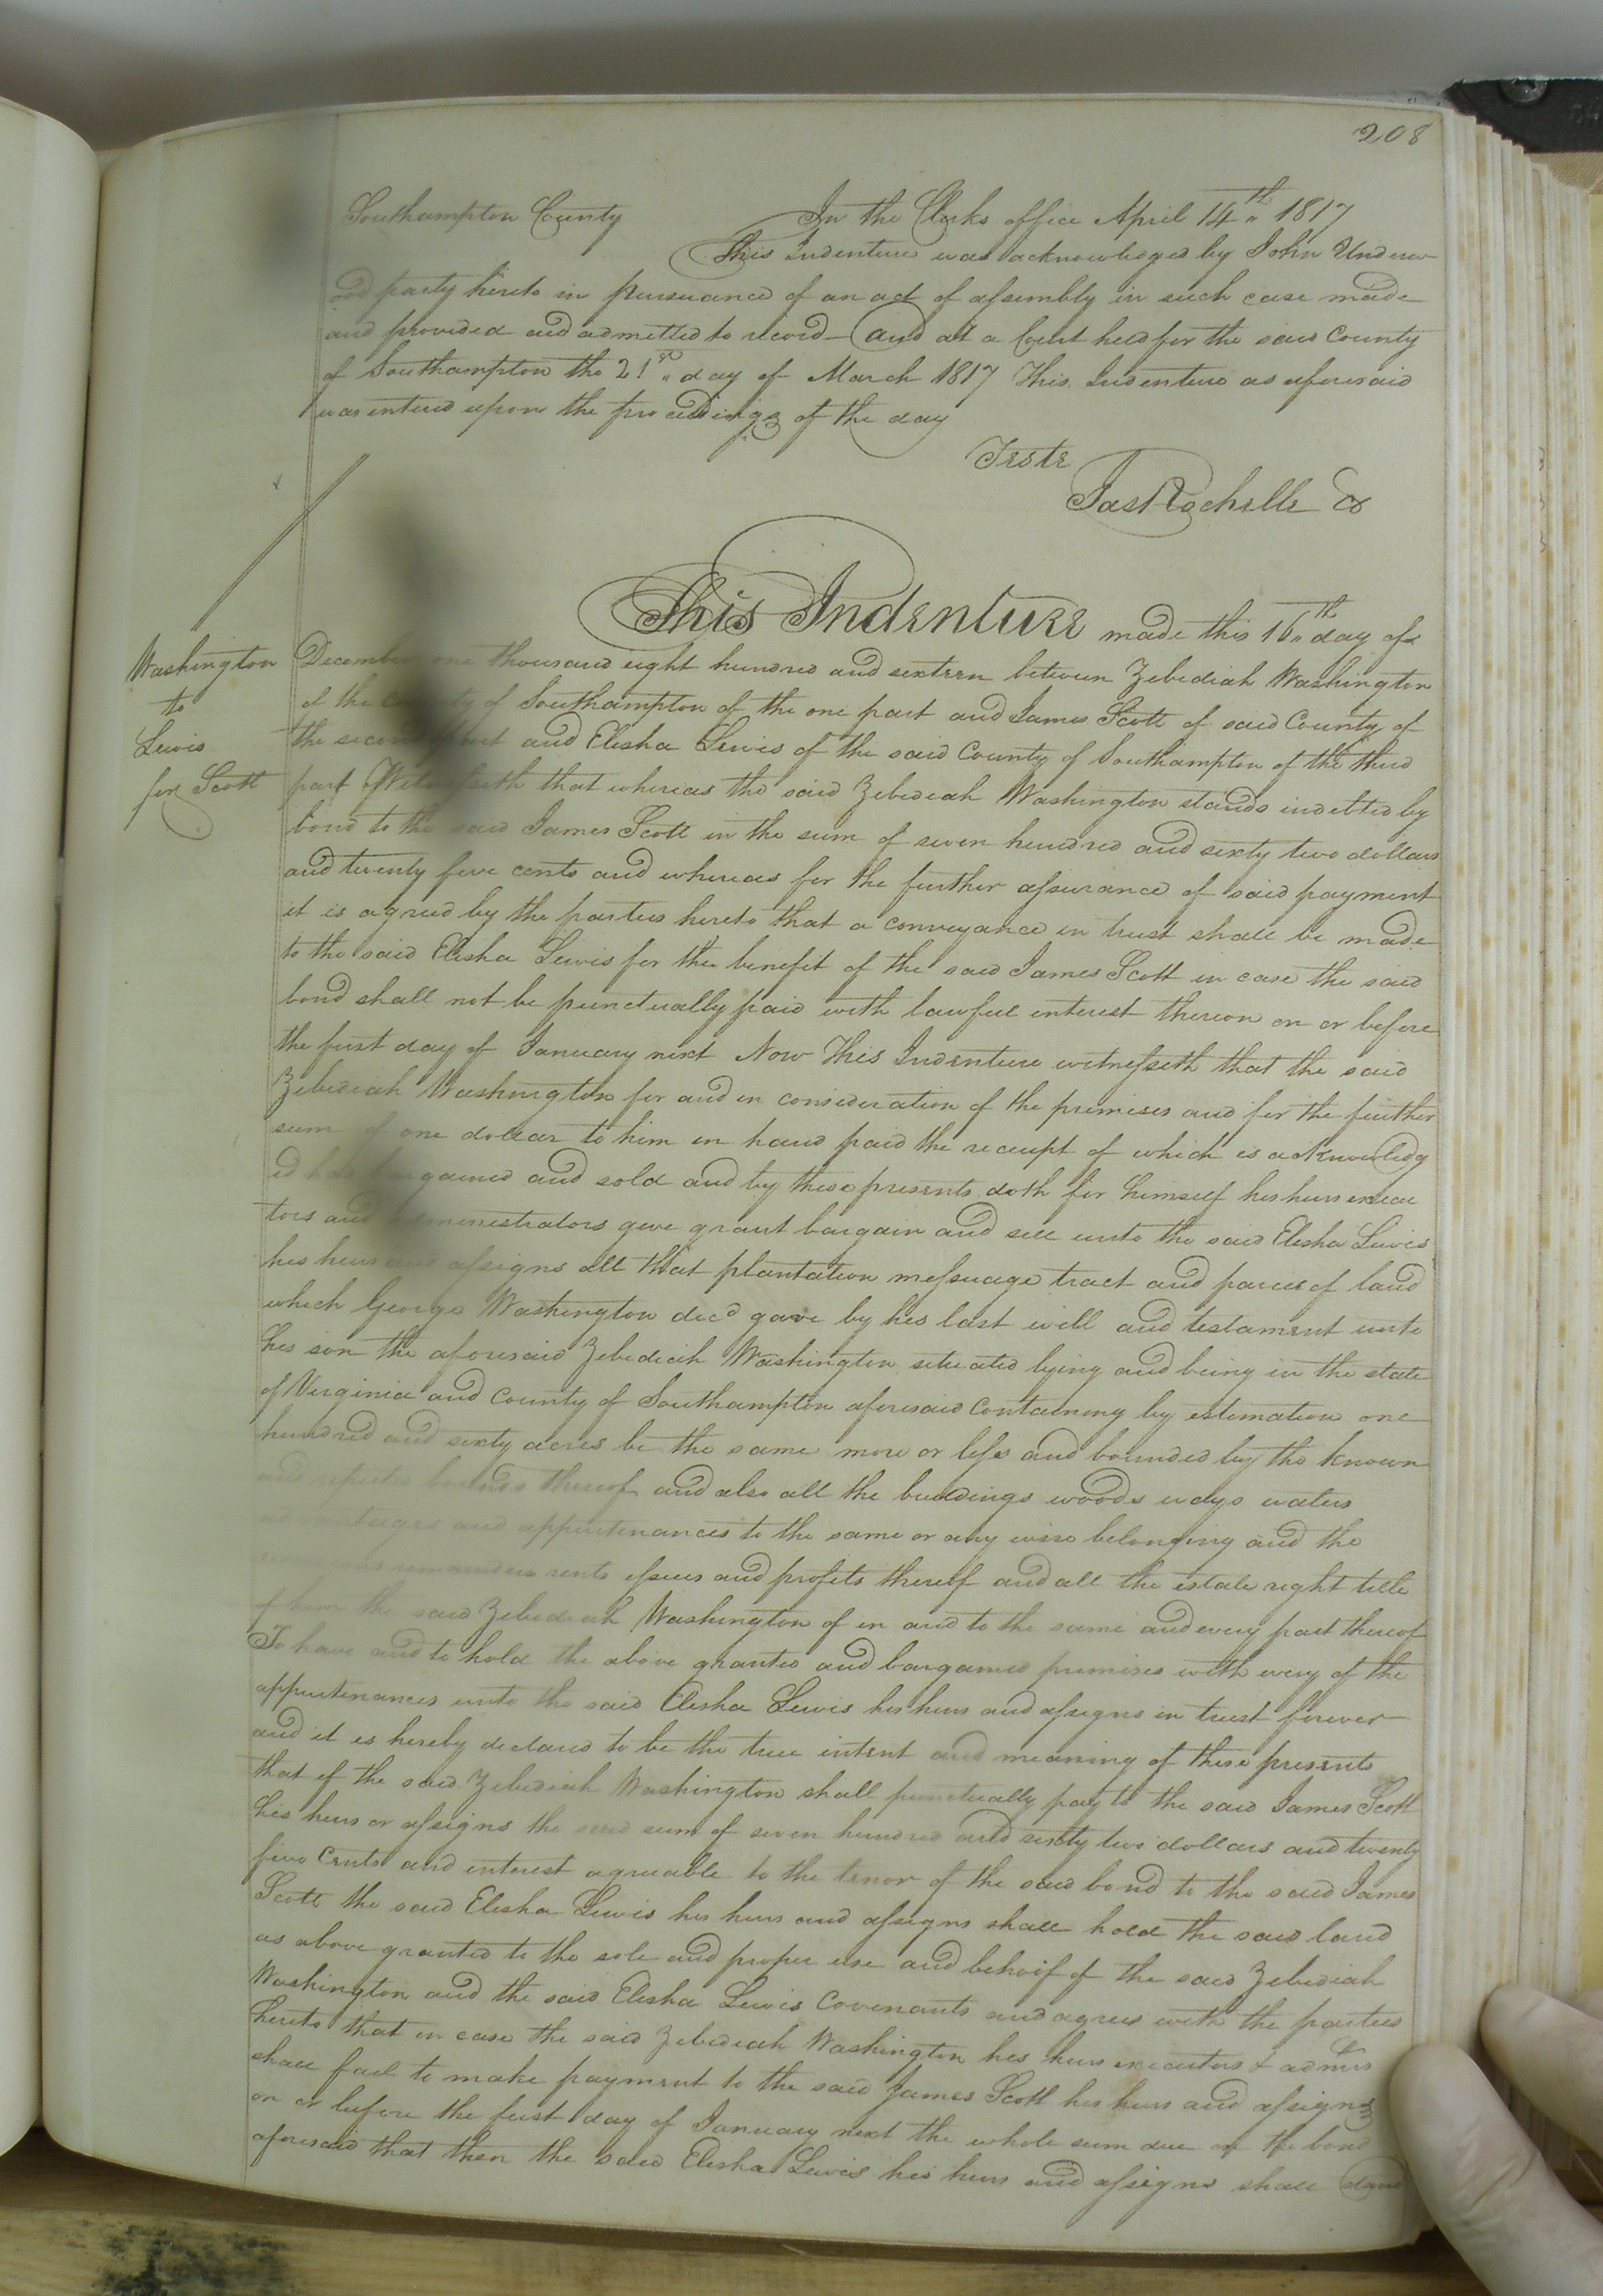 208
Southampton County In the Clerks office April 14th 1817
This Indenture was acknowledged by John Underw
ood party hereto in pursuance of an act of assembly in such case made
and provided and admitted to record - And at a Court held for the said County
of Southampton the 21st day of March 1817 This Indenture as aforesaid
was entered upon the proceedings of the day
Teste
Jas Rochelle Cr
This Indenture made this 16th day of
Washington
to
Lewis
for Scott
December one thousand eight hundred and sixteen between Zebediah Washington
of the county of Southampton of the one part and James Scott of said County of
the second part and Elisha Lewis of the said County of Southampton of the third
part Witnesseth that whereas the said Zebediah Washington stands indebted by
bond to the said James Scott in the sum of seven hundred and sixty two dollars
and twenty five cents and whereas for the further assurance of said payment
it is agreed by the parties hereto that a conveyance in trust shall be made
to the said Elisha Lewis for the benefit of the said James Scott in case the said
bond shall not be punctually paid with lawful interest thereon on or before
the first day of January next Now This Indenture witnesseth that the said
Zebediah Washington for and in consideration of the premises and for the further
sum of one dollar to him in hand paid the receipt of which is acknowledg
ed has bargained and sold and by these presents doth for himself his heirs execu
tors and administrators give grant bargain and sell unto the said Elisha Lewis
his heirs and assigns all that plantation messuage tract and parcel of land
which George Washington decd gave by his last will and testament unto
his son the aforesaid Zebediah Washington situated lying and being in the state
of Virginia and County of Southampton aforesaid Containing by estimation one
hundred and sixty acres be the same more or less and bounded by the known
and reputed bounds thereof and also all the buildings woods ways waters
advantages and appurtenances to the same or any wise belonging and the
remainders rents issues and profits thereof and all the estate right title
of him the said Zebediah Washington of in and to the same and every part thereof
To have and to hold the above granted and bargained premises with every of the
appurtenances unto the said Elisha Lewis his heirs and assigns in trust forever
and it is hereby declared to be the true intent and meaning of these presents
that if the said Zebediah Washington shall punctually pay to the said James Scott
his heirs or assigns the said sum of seven hundred and sixty two dollars and twenty
five Cents and interest agreeable to the tenor of the said bond to the said James
Scott the said Elisha Lewis his heirs and assigns shall hold the said land
as above granted to the sole and proper use and behoof of the said Zebediah
Washington and the said Elisha Lewis Covenants and agrees with the parties
hereto that in case the said Zebediah Washington his heirs executors & admrs
shall fail to make payment to the said James Scott his heirs and assigns
on or before the first day of January next the whole sum due on the bond
aforesaid that then the said Elisha Lewis his heirs and assigns shall